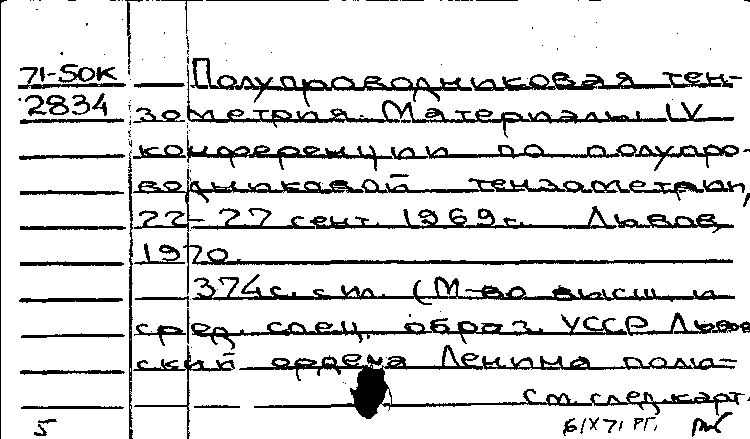 71-50К Полупроводниковая тен-
2834 зометрия. Материалы IV
конференции по полупро-
водниковой тензометрии,
22-27 сент. 1969 г. Львов,
1970.
374 с. с ил. (М-во высш. и
сред. спец. образ. УССР Львов
ский ордена Ленина поли-
см. след. карт.
5 6/X 71 РГ.